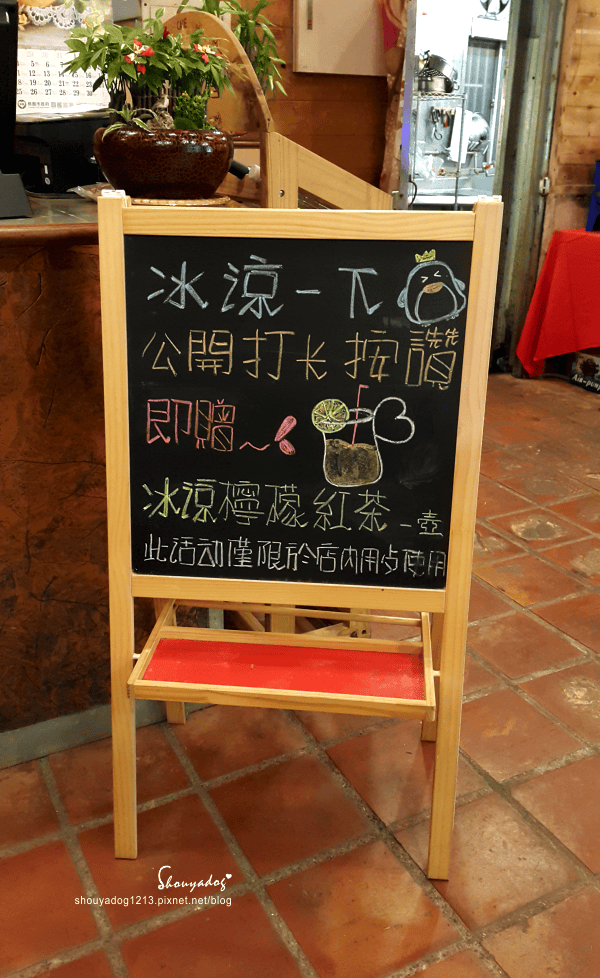 冰涼一下
公開打长按讚
即贈～
冰涼檸檬紅茶一壺
此活动僅限於店內用步使用
Shouyadog
shouyadog1213.pixnet.net/blog